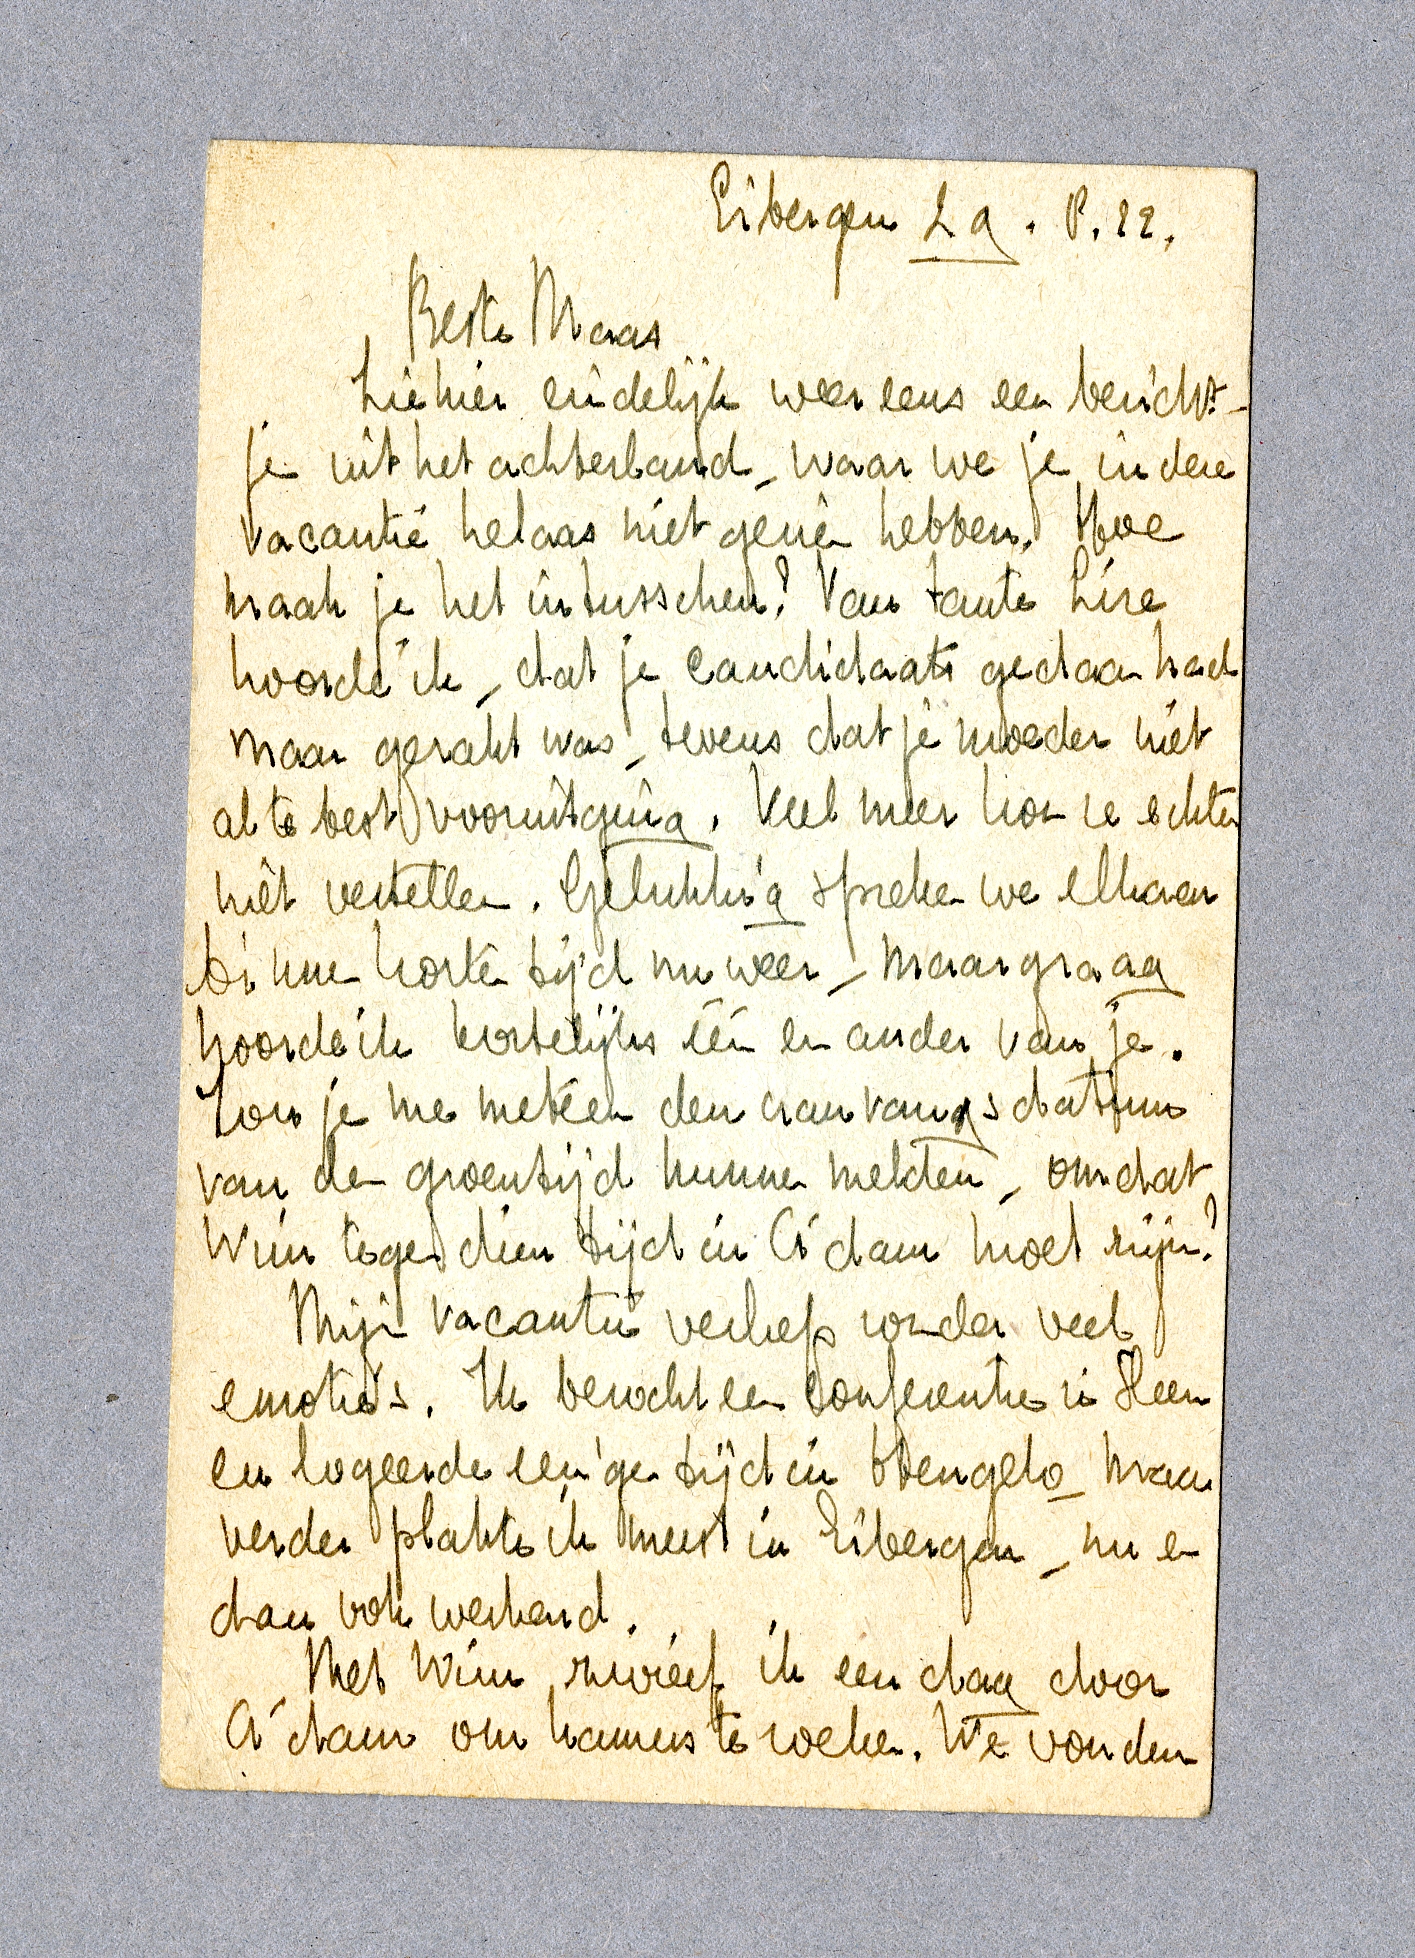 Eibergen Zg. 8.22.
Beste Maas
Ziehier eindelijk weer eens een bericht-
je uit het achterland, waar we je in deze
vacantie helaas niet gezien hebben. Hoe
maak je het intusschen? Van tante Lize
hoorde ik, dat je candidaats gedaan had
maar gezakt was, tevens dat je moeder niet
al te best vooruitging. Veel meer kon ze echter
niet vertellen. Gelukkig spreken we elkaar
binnen korten tijd nu weer, maar graag
hoorde ik kortelijks één en ander van je.
Zou je me meteen den aanvangsdatum
van den groentijd kunnen melden, omdat
Wim tegen dien tijd in A'dam moet zijn?
Mijn vacantie verliep zonder veel
emotie's. Ik bezocht een conferentie in
en logeerde eenigen tijd in Hengelo, maar
verder plakte ik meest in Eibergen, nu en
dan ook werkend.
Met Wim zwierf ik een dag door
A'dam om kamers te zoeken. We vonden